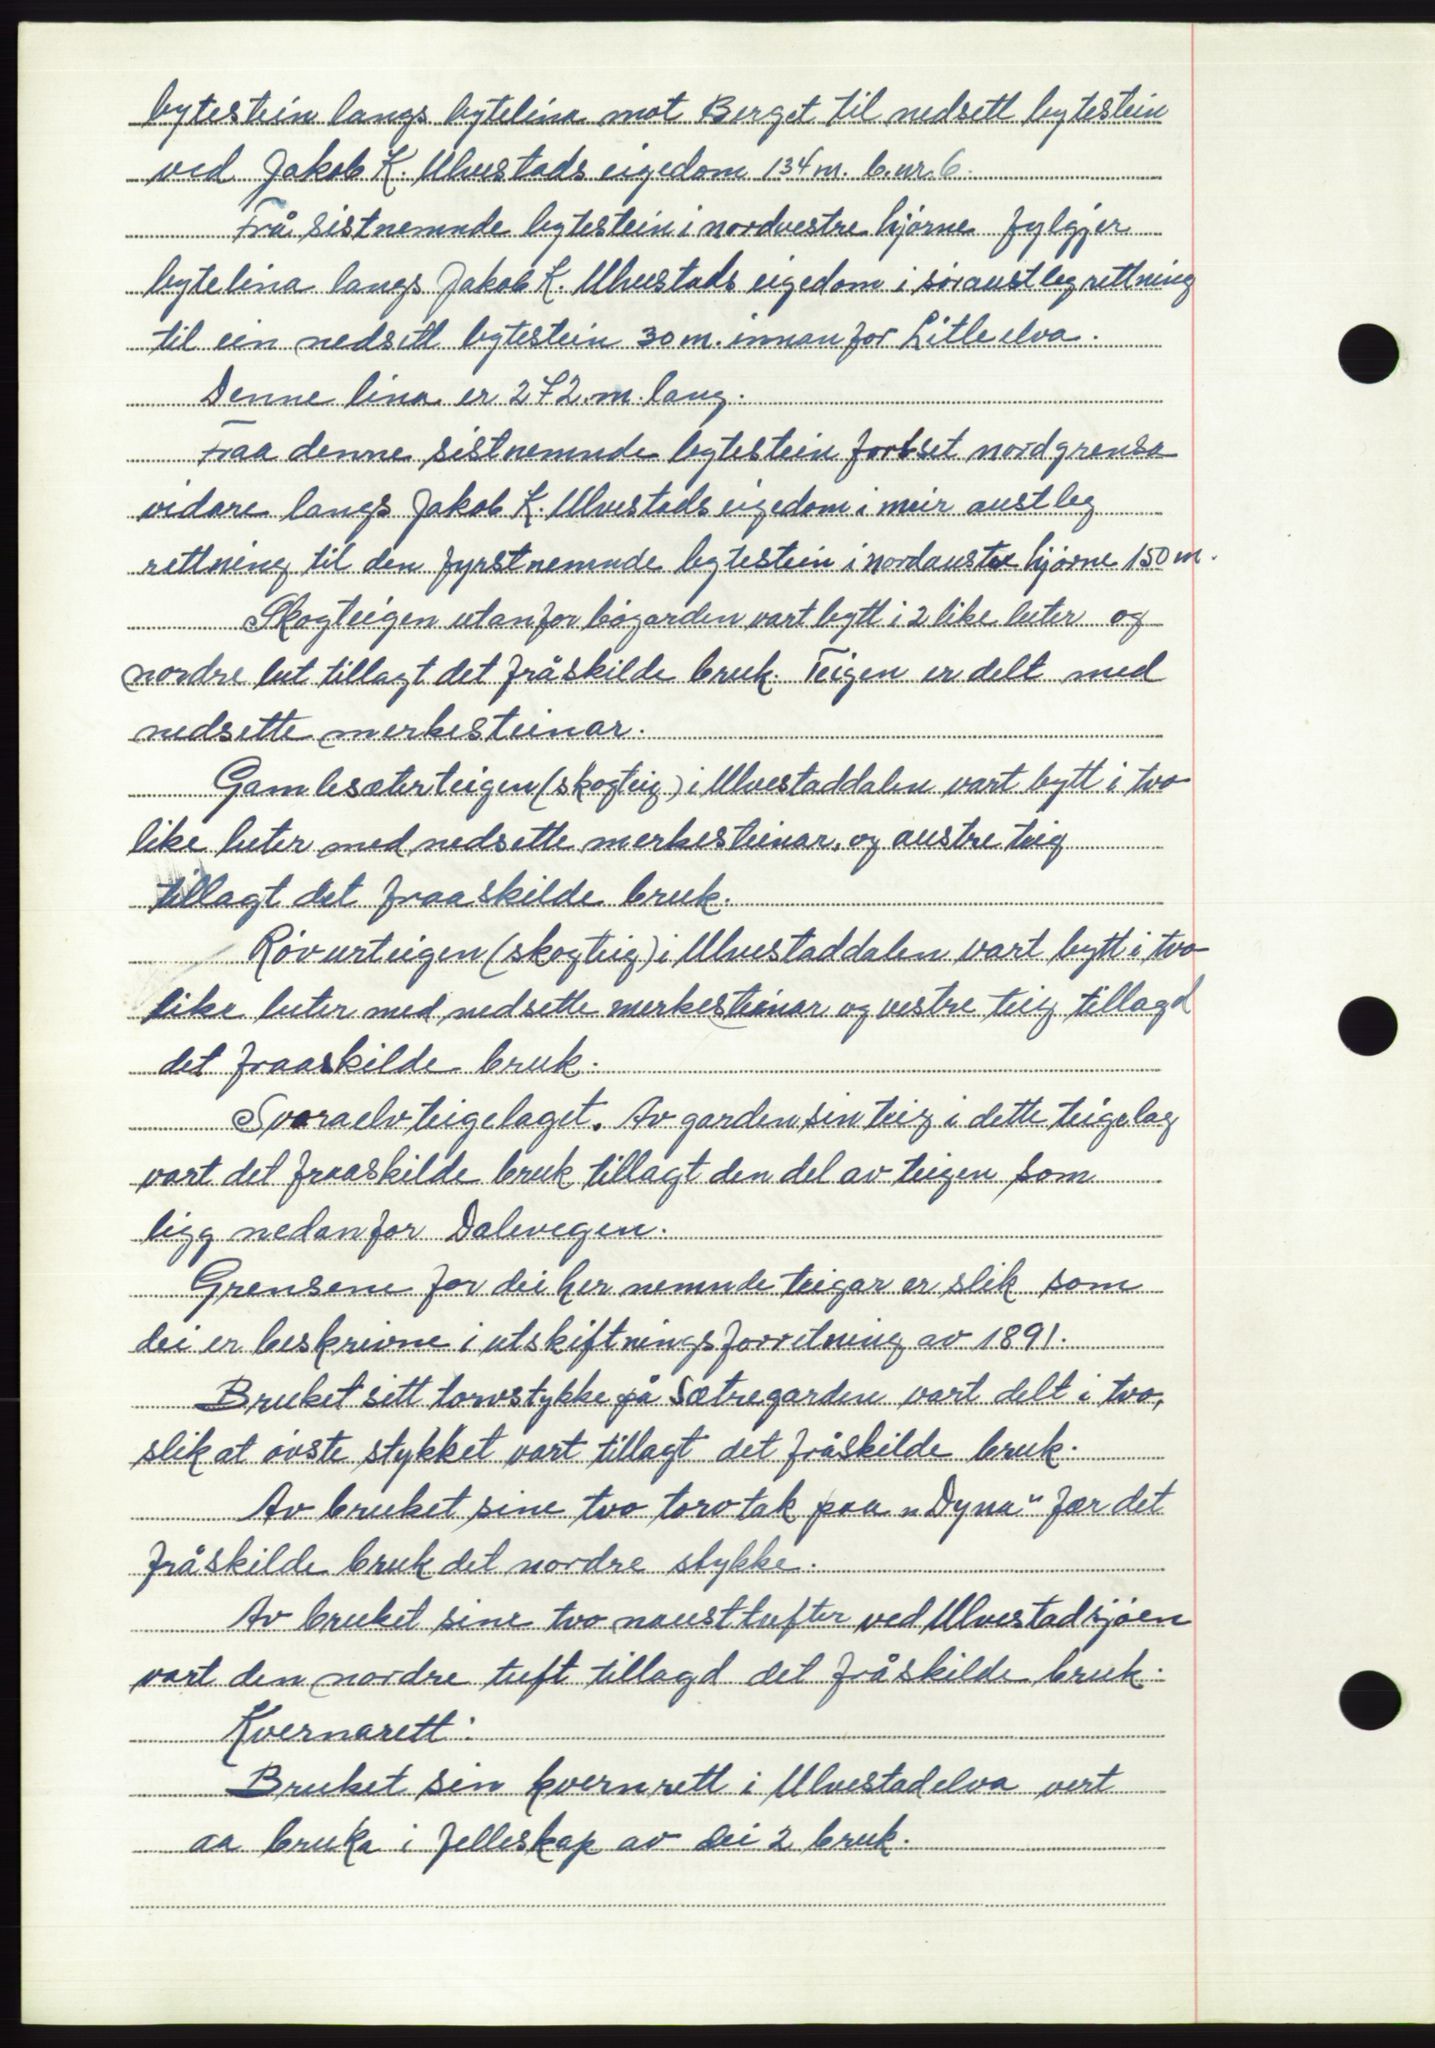 bytestein langs bytelina mot Berget til nedsett bytestein
ved Jakob K. Ulvestads eigedom 134 m. b.nr. 6.
Frå sistnemnde bytestein i nordvestre hjørne fylgjer
bytelina langs Jakob K. Ulvestads eigedom i søraustleg rettning
til ein nedsett bytestein 30 m. innanfor Litleelva.
Denne lina er 272 m. lang.
Fraa denne sistnemnde bytestein fortset nordgrensa
vidare langs Jakob K. Ulvestads eigedom i meir austleg
rettning til den fyrstnemnde bytestein i nordaustre hjørne 150 m.
Skogteigen utanfor bøgarden vart bytt i 2 like luter og
nordre lut tillagt det fråskilde bruk. Teigen er delt med
nedsette merkesteinar.
Gamlesæterteigen (skogteig) i Ulvestaddalen vart bytt i tvo
like luter med nedsette merkesteinar, og austre teig
tillagt det fraaskilde bruk.
Røvurteigen (skogteig) i Ulvestaddalen vart bytt i tvo
like luter med nedsette merkesteinar og vestre teig tillagd
det fraaskilde bruk.
Svoraelvteigelaget. Av garden sin teig i dette teigelag
vart det fraaskilde bruk tillagt den del av teigen som
ligg nedanfor Dalevegen.
Grensene for dei her nemnde teigar er slik som
dei er beskrivne i utskiftningsforretning av 1891.
Bruket sitt torvstykke på Sætregarden vart delt i tvo,
slik at øvste stykket vart tillagt det fråskilde bruk.
Av bruket sine tvo torvtak paa „Dyna“ fær det
fråskilde bruk det nordre stykke.
Av bruket sine tvo nausttufter ved Ulvestadsjøen
vart den nordre tuft tillagd det fråskilde bruk.
Kvernarett:
Bruket sin kvernrett i Ulvestadelva vert
aa bruka i felleskap av dei 2 bruk.